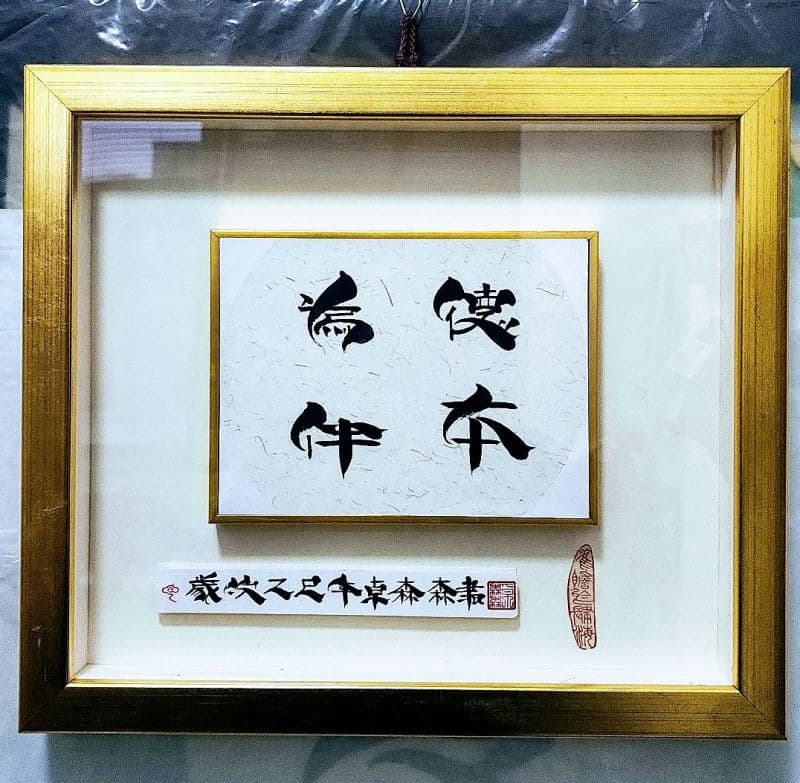 德本
為伴
歲次乙巳年卓森森書